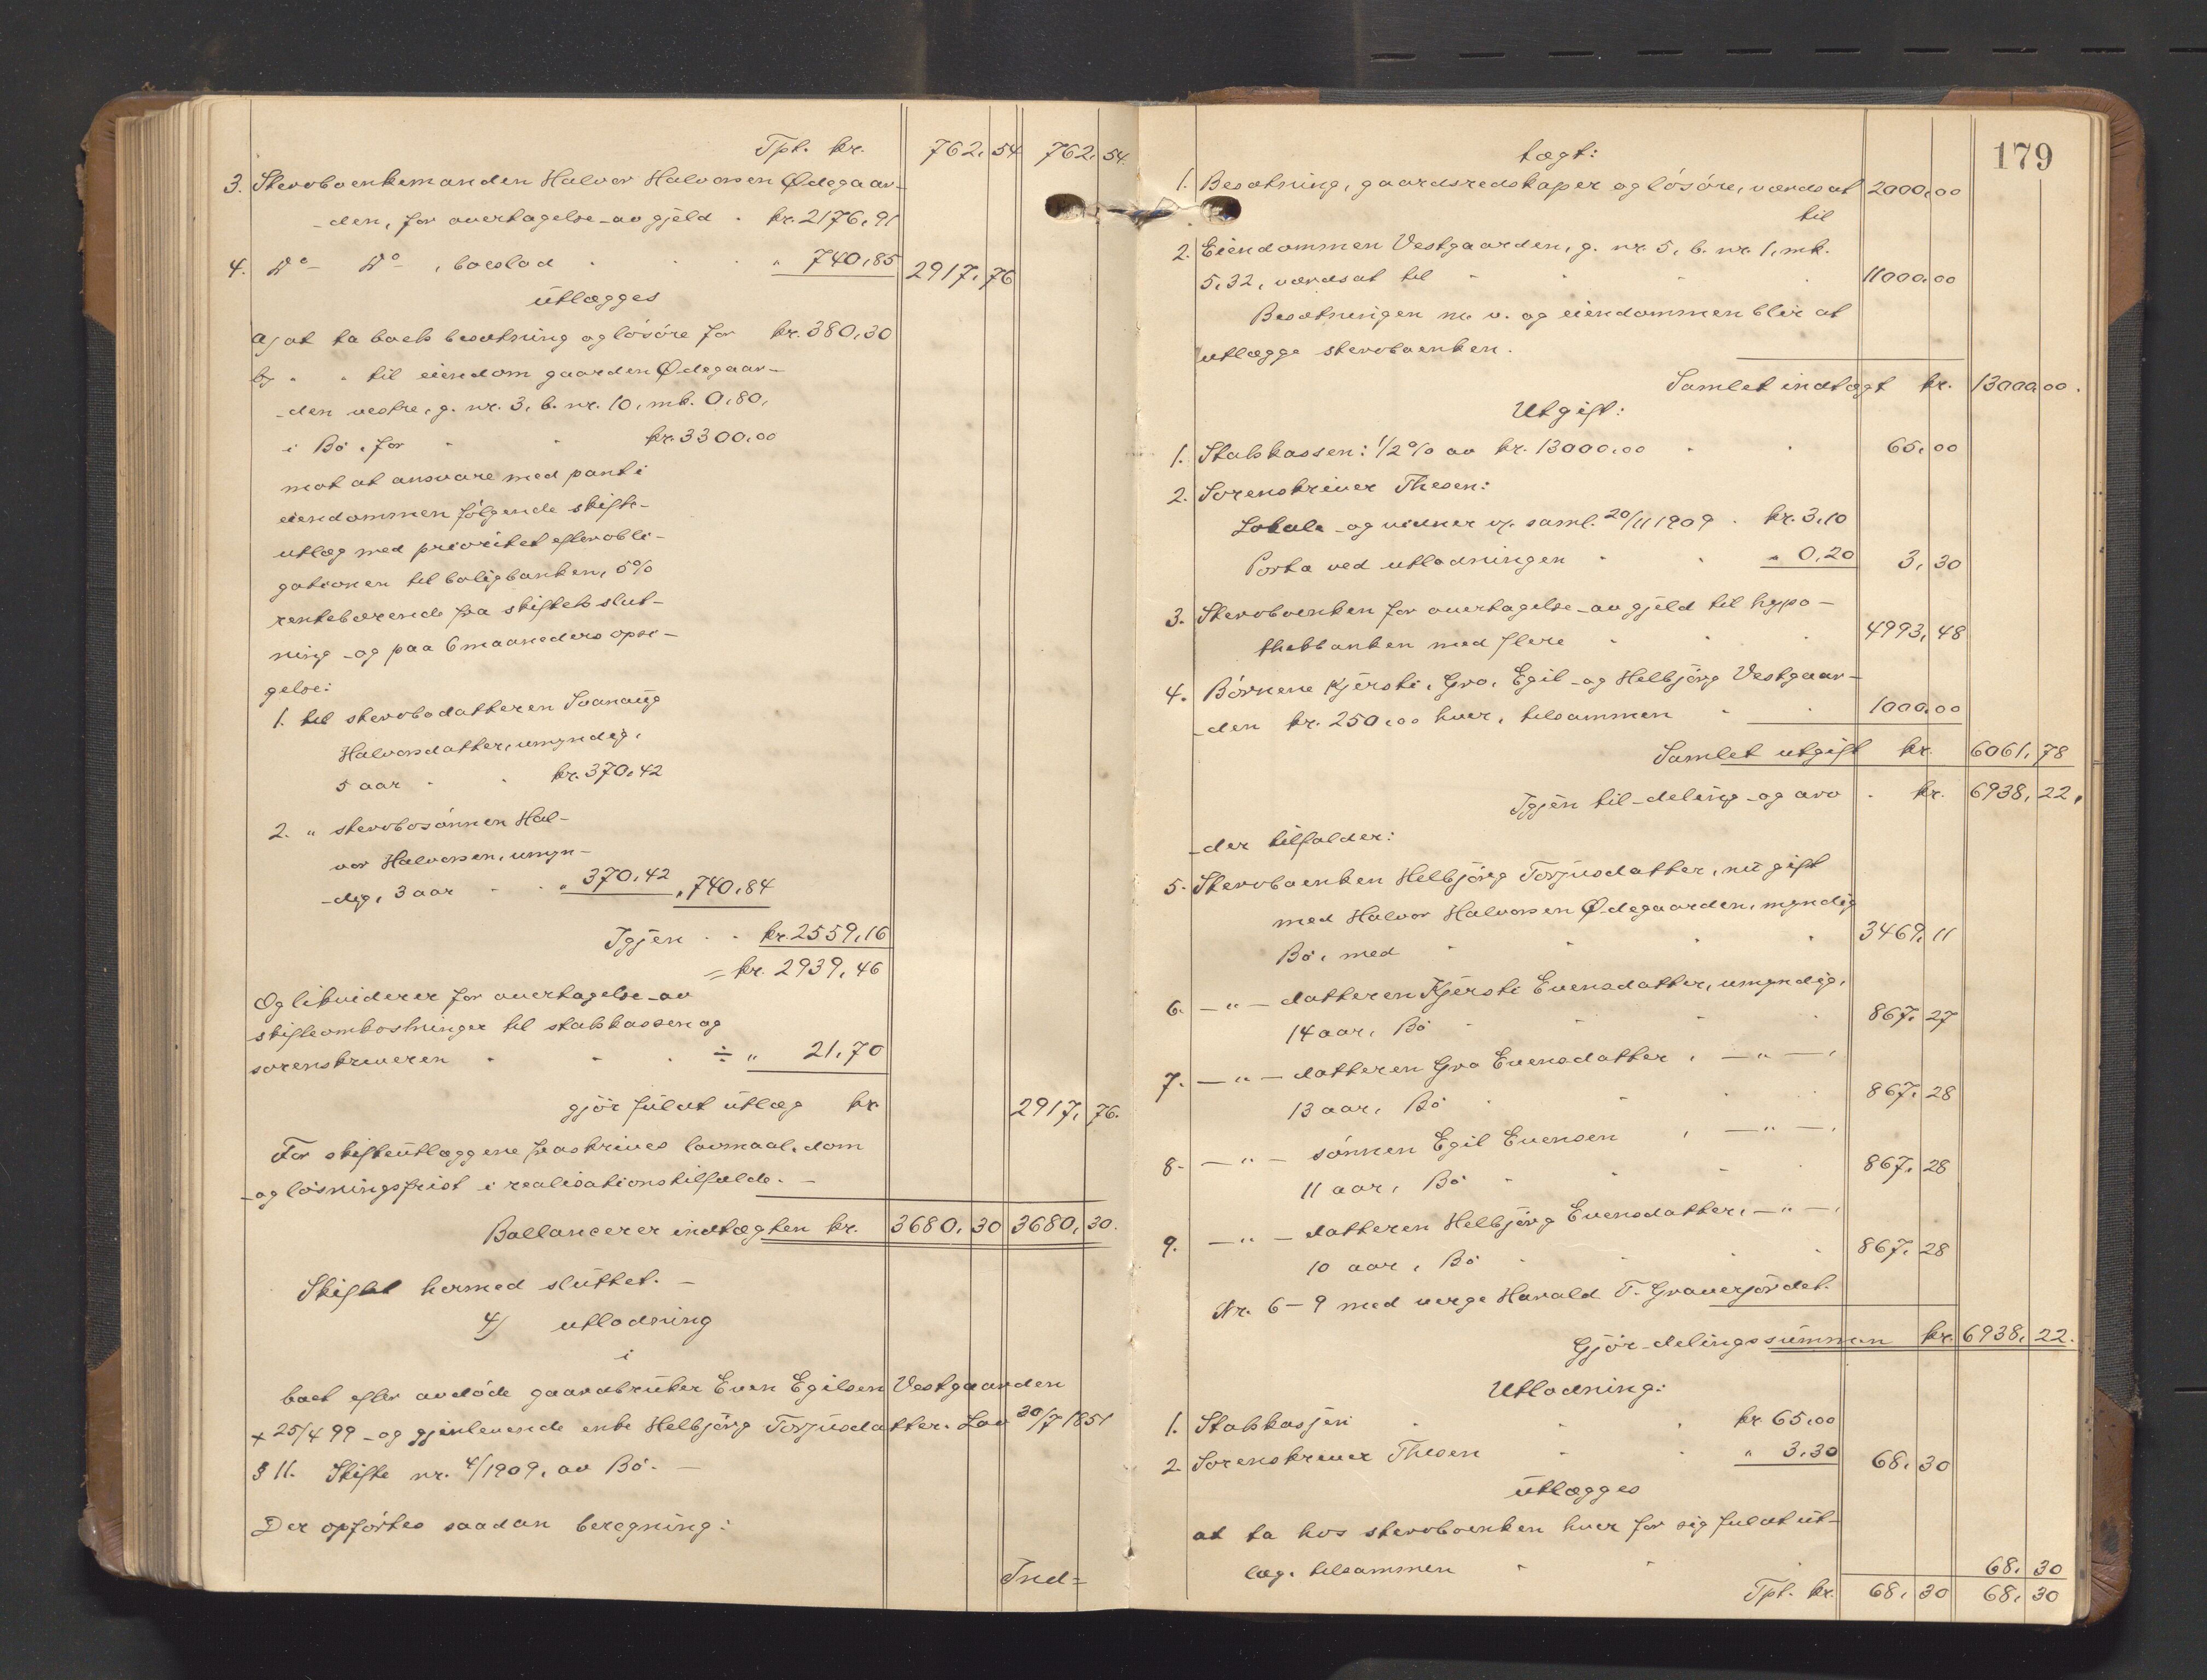 Tpt. kr. 762,54 762,54.
3. Stervboenkemanden Halvor Halvorsen Ødegaar-
den, for overtagelse av gjeld . kr. 2176,91
4. Do Do , boeslod . . . " 740,85 2917,76
utlægges
a) at ta boets besætning og løsøre for kr. 380,30
b) " " til eiendom gaarden Ødegaar-
den vestre, g. nr. 3, b. nr. 10, mk. 0,80,
i Bø, for . . kr. 3300,00
mot at ansvare med pant i
eiendommen følgende skifte-
utlæg med prioritet efter obli-
gationen til boligbanken, 5%
rentebærende fra skiftets slut-
ning og paa 6 maaneders opsi-
gelse:
1. til stervbodatteren Svanaug
Halvorsdatter, umyndig,
5 aar . . kr. 370,42
2. " stervbosønnen Hal-
vor Halvorsen, umyn-
dig, 3 aar . . " 370,42 " 740,84
Igjen . . kr. 2559,16
= kr. 2939,46
Og likviderer for overtagelse av
skifteomkostninger til statskassen og
sorenskriveren . . . ÷ " 21,70
gjør fuldt utlæg kr. 2917,76.
For skifteutlæggene fraskrives lovmaal, dom
og løsningsfrist i realisationstilfælde. —
Ballancerer indtægten kr. 3680,30 3680,30.
Skiftet hermed sluttet. —
4) utlodning
i
boet efter avdøde gaardbruker Even Egilsen Vestgaarden
+ 25/4 99 og gjenlevende enke Helbjørg Torjusdatter. Lov 30/7 1851
§ 11. Skifte nr. 4/1909, av Bø. —
Der opførtes saadan beregning:
Ind=
179
tægt:
1. Besætning, gaardsredskaper og løsøre, værdsat 2000,00
til
2. Eiendommen Vestgaarden, g. nr. 5, b. nr. 1, mk.
5,32, værdsat til . . . 11000,00
Besætningen m. v. og eiendommen blir at
utlægge stervboenken.
Samlet indtægt kr. 13000,00.
Utgift:
1. Statskassen: 1/2 % av kr. 13000,00 . . 65,00
2. Sorenskriver Thesen:
Lokale og vidner v. saml. 20/11 1909 . kr. 3,10
Porto ved utlodningen . . " 0,20 3,30
3. Stervboenken for overtagelse av gjeld til hypo-
thekbanken med flere . . . 4993,48
4. Børnene Kjersti, Gro, Egil og Helbjørg Vestgaar-
den kr. 250,00 hver, tilsammen . . 1000,00
Samlet utgift kr. 6061,78
Igjen til deling og arv . kr. 6938,22,
der tilfalder:
5. Stervboenken Helbjørg Torjusdatter, nu gift
med Halvor Halvorsen Ødegaarden, myndig
Bø, med . . . . 3469,11
6. — " — datteren Kjersti Evensdatter, umyndig,
14 aar, Bø . . . . 867,27
7. — " — datteren Gro Evensdatter , — " — ,
13 aar, Bø . . . . 867,28
8. — " — sønnen Egil Evensen , — " — ,
11 aar, Bø . . . . 867,28
9. — " — datteren Helbjørg Evensdatter, — " — ,
10 aar, Bø . . . . 867,28
Nr. 6 – 9 med verge Harald T. Graverjordet.
Gjør delingssummen kr. 6938,22.
Utlodning:
1. Statskassen . . . kr. 65,00
2. Sorenskriver Thesen . . " 3,30 68,30
utlægges
at ta hos stervboenken hver for sig fuldt ut-
læg, tilsammen . . . 68,30
Tpt. kr. 68,30 68,30